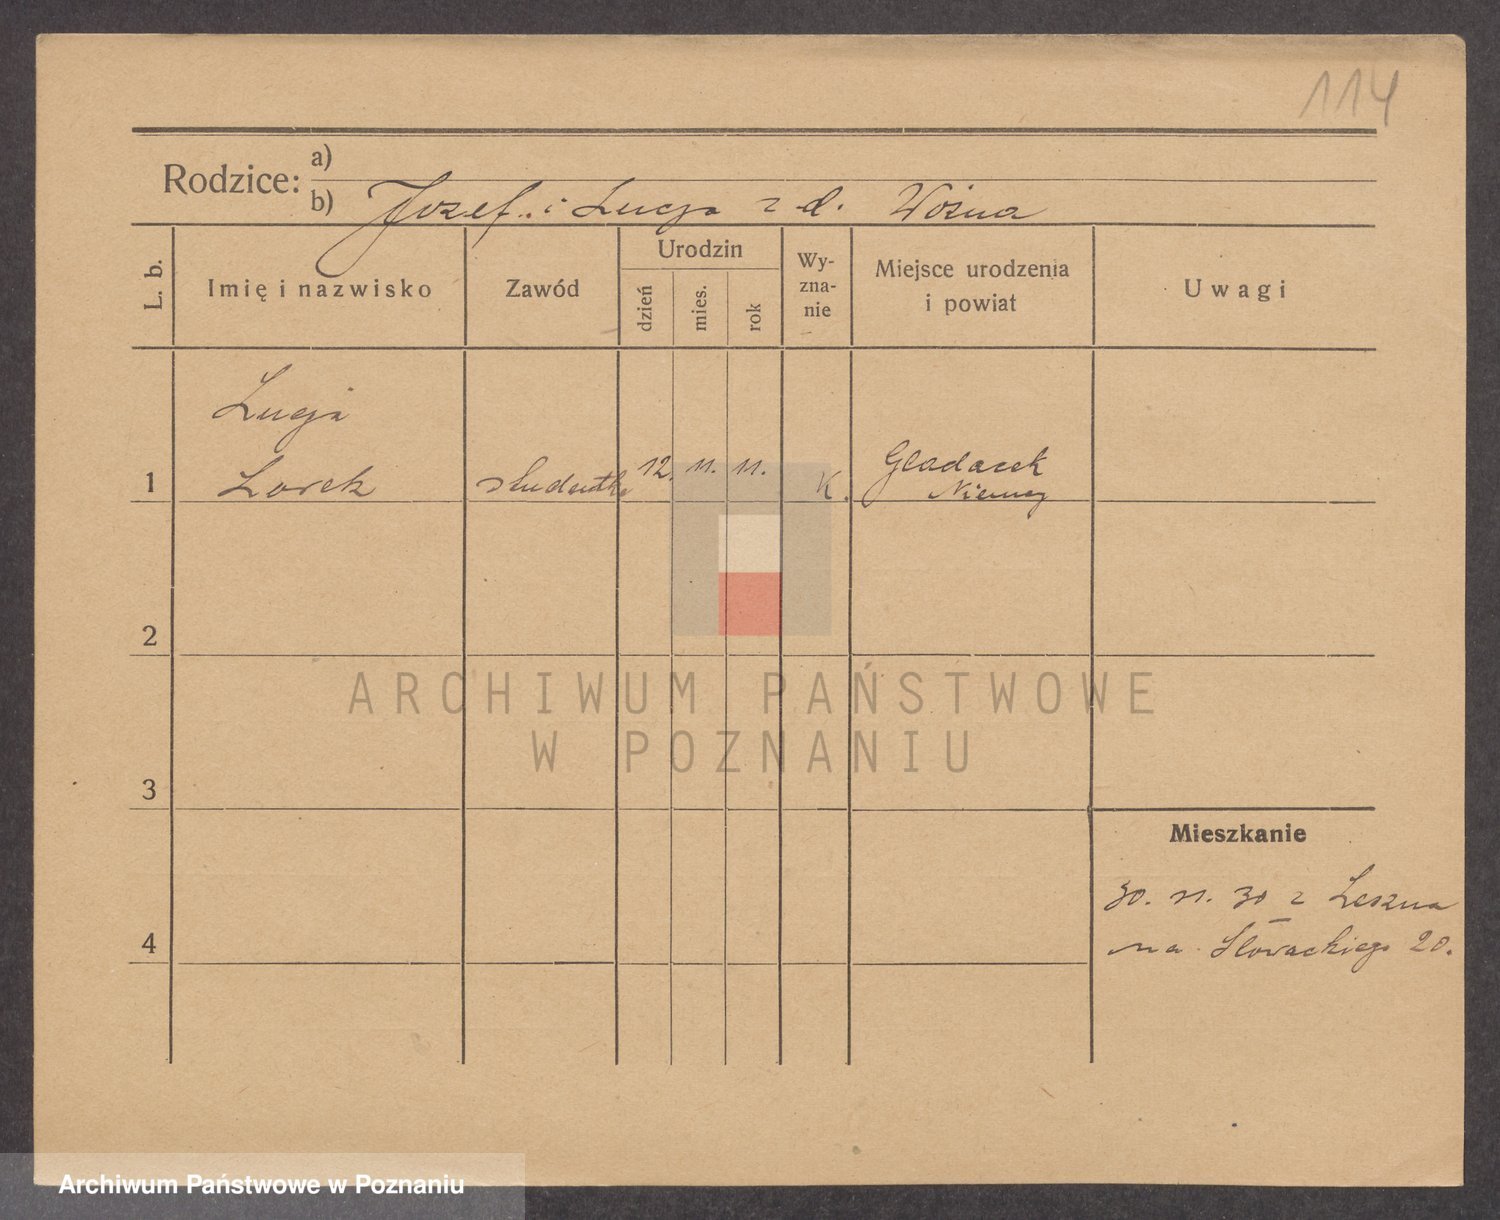 114
Rodzice: a)
b) Jozef i Lucja z d. Woźna
L. b.
Imię i nazwisko
Zawód
Urodzin
dzień
mies.
rok
Wy-
zna-
nie
Miejsce urodzenia
i powiat
Uwagi
Lucja
1 Lorek studentka 12. 11. 11. K. Gladacek
Niemcy
2
ARCHIWUM PAŃSTWOWE
W POZNANIU
3
Mieszkanie
30. 11. 30 z Leszna
4 na Słowackiego 20.
Archiwum Państwowe w Poznaniu